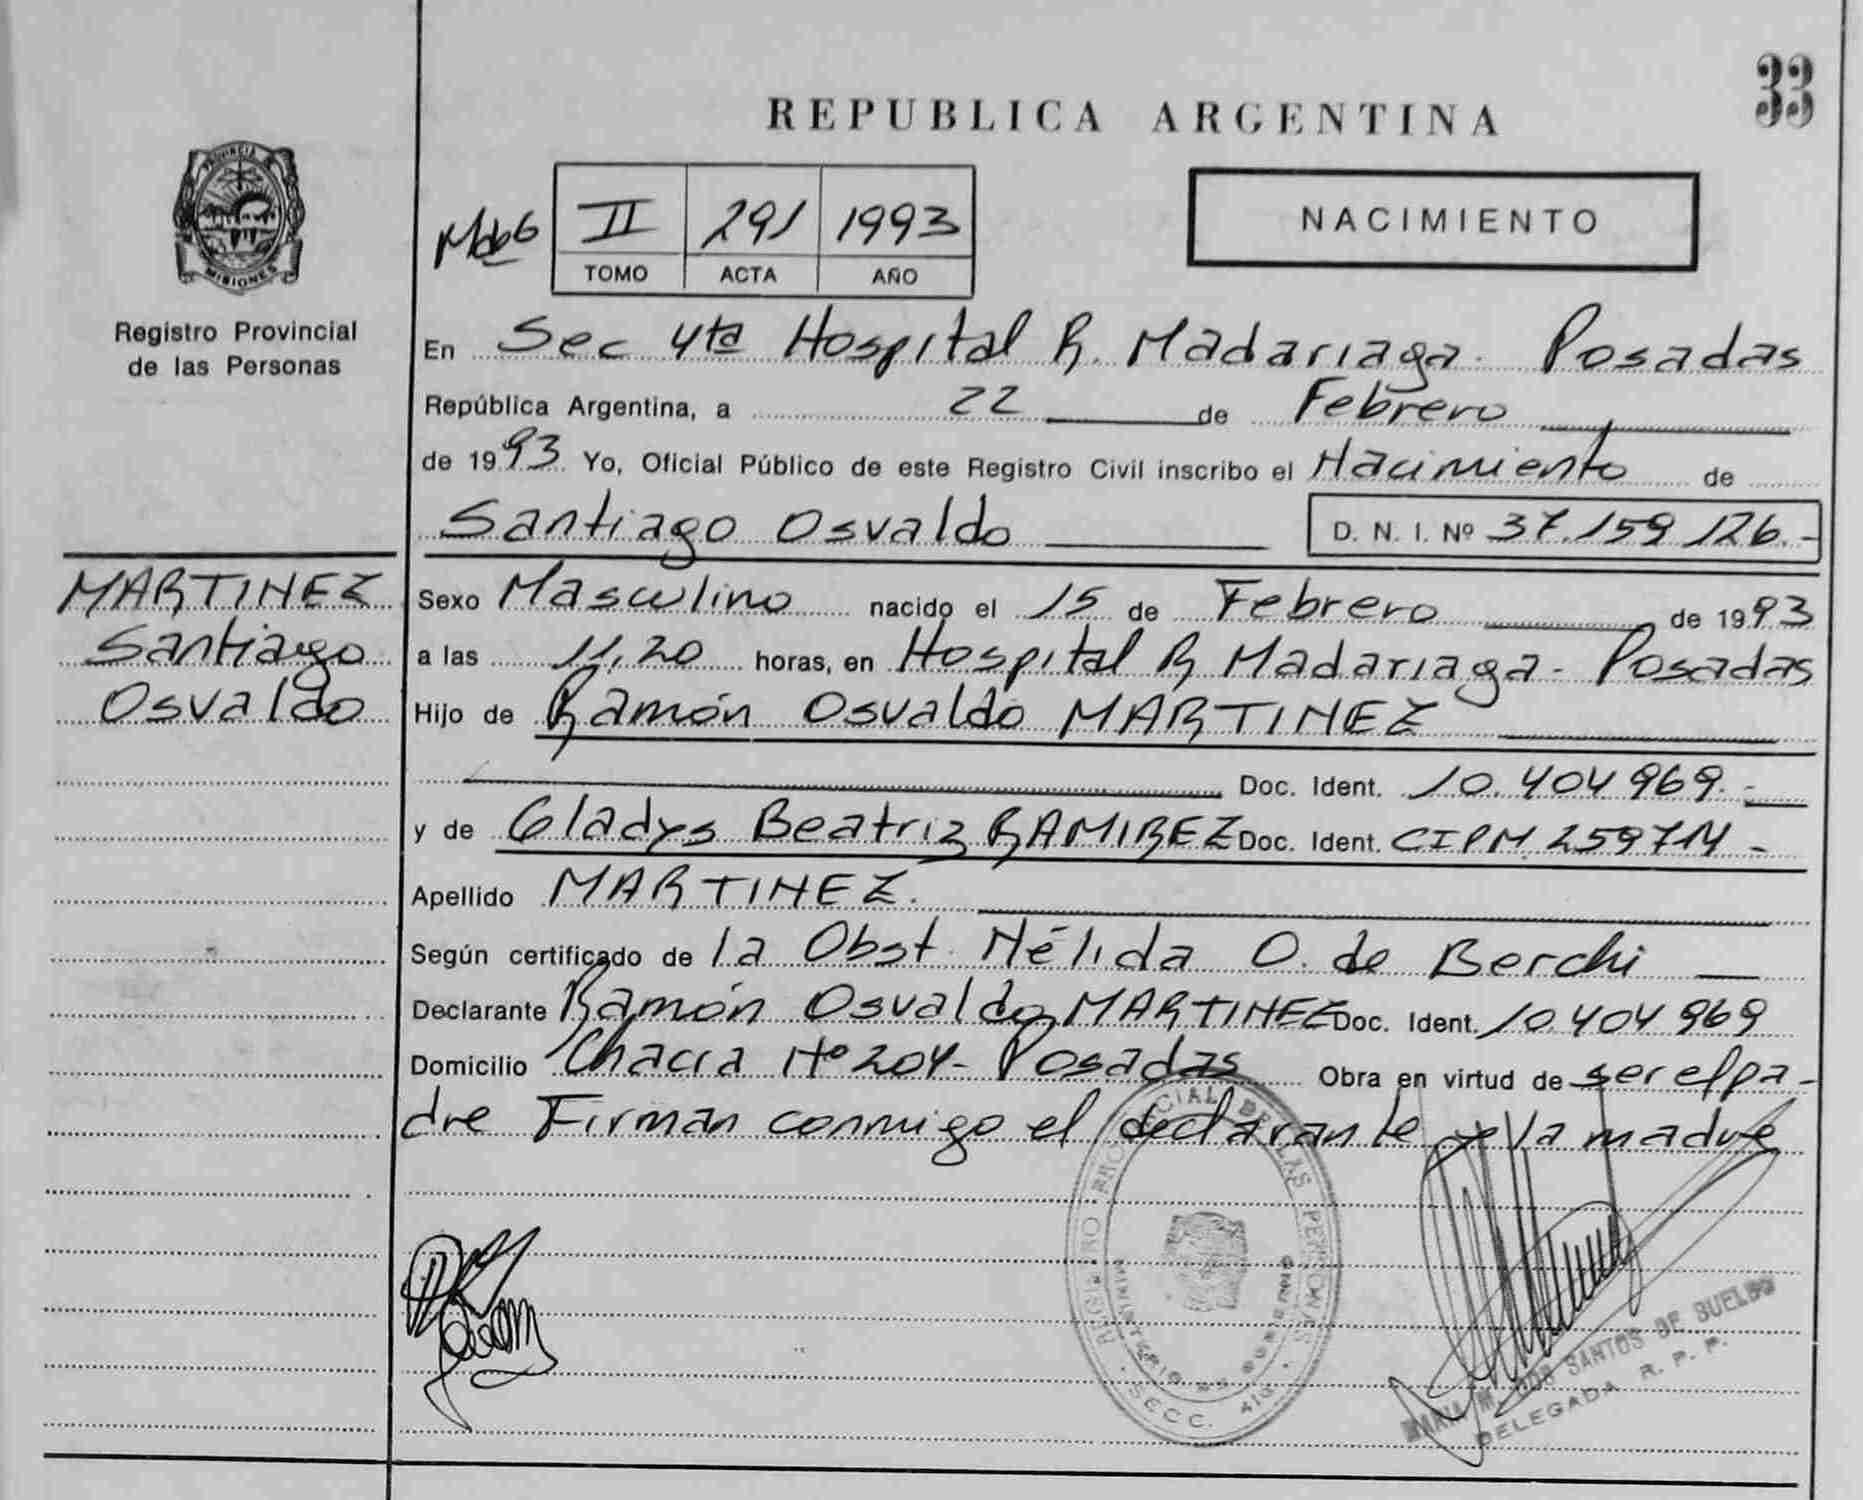 33
REPUBLICA ARGENTINA
PROVINCIA DE
MISIONES
Registro Provincial
de las Personas
II 291 1993
TOMO ACTA AÑO
NACIMIENTO
En Sec 4ta Hospital R. Madariaga. Posadas
República Argentina, a 22 de Febrero
de 1993 Yo, Oficial Público de este Registro Civil inscribo el Nacimiento de
Santiago Osvaldo D. N. I. Nº 37.159 126.-
MARTINEZ
Santiago
Osvaldo
Sexo Masculino nacido el 15 de Febrero de 1993
a las 11,20 horas, en Hospital R Madariaga - Posadas
Hijo de Ramón Osvaldo MARTINEZ
Doc. Ident. 10.404 969.-
y de Gladys Beatriz RAMIREZ Doc. Ident. CIPM 259714 -
Apellido MARTINEZ.
Según certificado de la Obst. Nélida O. de Berchi
Declarante Ramón Osvaldo MARTINEZ Doc. Ident. 10.404 969
Domicilio Chacra Nº 204 - Posadas Obra en virtud de ser el pa-
dre Firman conmigo el declarante y la madre
REGISTRO PROVINCIAL DE LAS PERSONAS
MINISTERIO DE GOBIERNO
SECC. 4ta
MARIA M. DOS SANTOS DE SUELDO
DELEGADA R. P. P.